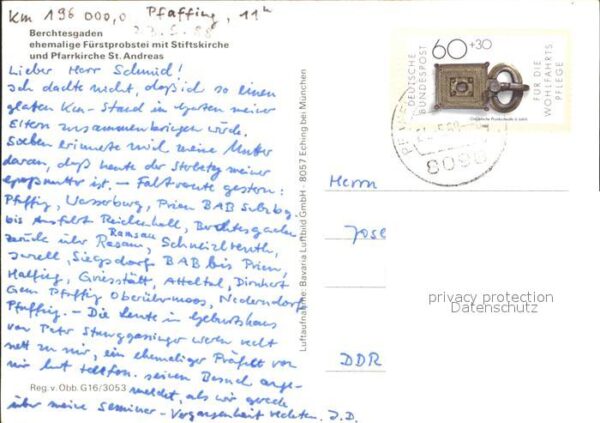 Km 196 000,0 Pfaffing, 11h
23.5.88
Berchtesgaden
ehemalige Fürstpropstei mit Stiftskirche
und Pfarrkirche St. Andreas
Lieber Herr Schmid!
Ich dachte nicht, daß ich so einen
glatten Km-Stand im Garten meiner
Eltern zusammenbringen würde.
Soeben erinnerte mich meine Mutter
daran, daß heute der Sterbetag meiner
Großmutter ist. – Fahrtroute gestern:
Pfaffing, Wasserburg, Prien BAB Salzbg.
bis Ausfahrt Reichenhall, Berchtesgaden
zurück über Ramsau, Schneizlreuth,
Inzell, Siegsdorf BAB bis Prien,
Halfing, Griesstätt, Atteltal,
Gem Pfaffing Oberübermoos, Nederndorf
Pfaffing. – Die Leute im Geburtshaus
von Peter Stanggassinger waren recht
nett zu mir, ein ehemaliger Präfekt von
mir hat telefon. seinen Besuch ange-
meldet, als wir gerade
über meine Seminar-Vergangenheit redeten. J.D.
Reg. v. Obb. G16/3053
Luftaufnahme: Bavaria Luftbild GmbH · 8057 Eching bei München
60+30
DEUTSCHE
BUNDESPOST
FÜR DIE
WOHLFAHRTS
PFLEGE
8090
Herrn
Jose
privacy protection
Datenschutz
DDR